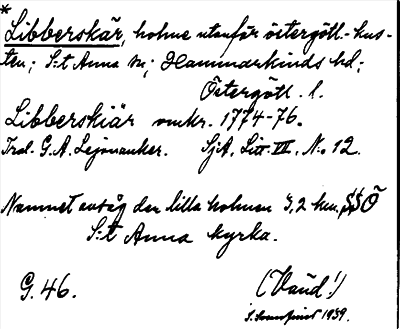 *
Libberskär, holme utanför östergötl.-kus-
ten; S:t Anna sn; Hammarkinds hd;
Östergötl. l.
Libberskiär omkr. 1774-76.
Trol. G.A. Lejonanker. SjA, Litt. III, No 12.
Namnet avsåg den lilla holmen 3,2 km. SSÖ
S:t Anna kyrka.
G. 46. (Vänd!)
1939.